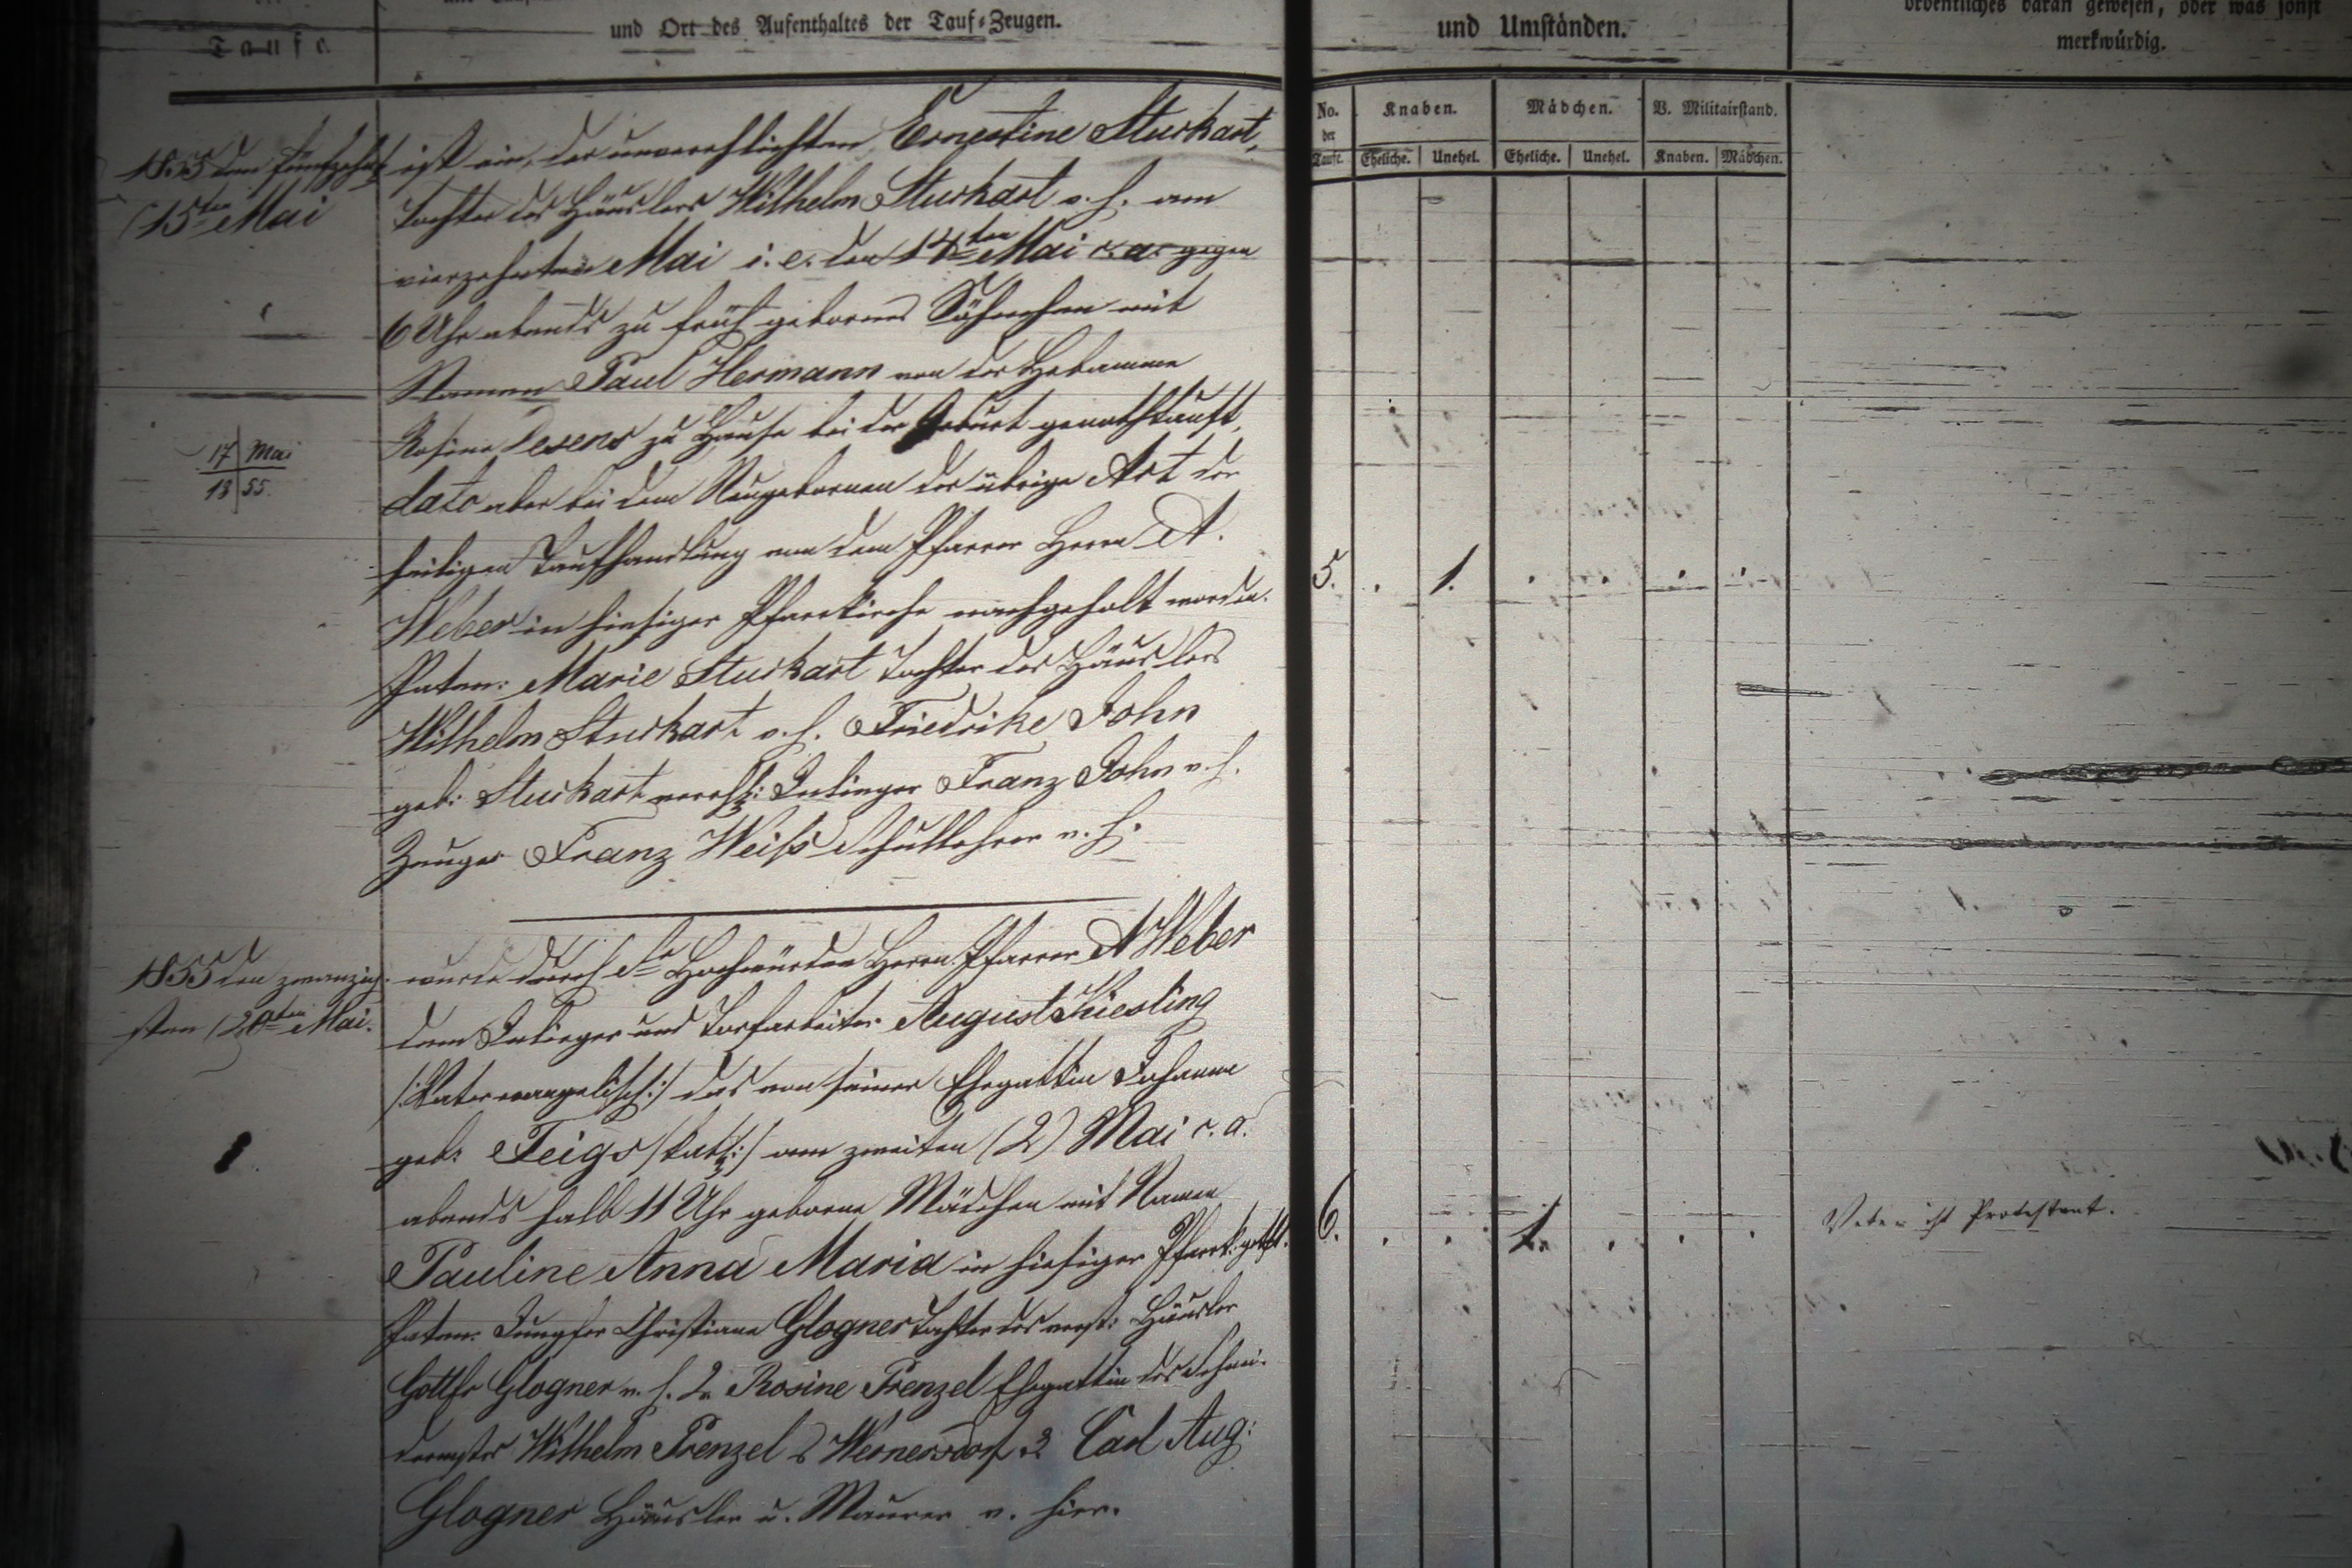 Taufe
und Ort des Aufenthaltes der Tauf-Zeugen.
und Umständen.
ordentliches daran gewesen, oder was sonst
merkwürdig.
No. der Taufe. Knaben. Mädchen. V. Militairstand.
Eheliche. Unehel. Eheliche. Unehel. Knaben. Mädchen.
1855 den fünfzehnt
(15ten Mai
ist ein, der unverehlichten Ernestine Sturkart,
Tochter des Häuslers Wilhelm Sturkart v. h. am
vierzehnten Mai i. e. den 14ten Mai c. a. gegen
6 Uhr abends zu früh gebornes Söhnchen mit
Namen Paul Hermann von der Hebamme
Rosina Desens zu Hause bei der Geburt genothtauft,
17 Mai
18 55.
dato aber bei dem Neugebornen der übrige Act der
heiligen Taufhandlung von dem Pfarrer Herrn A.
Weber in hiesiger Pfarrkirche nachgeholt worden.
5. . 1. . . . .
Paten: Marie Sturkart Tochter des Häuslers
Wilhelm Sturkart v. h. Friedrike John
geb: Sturkart verehl: Inlieger Franz John v. h.
Zeuge Franz Weiß Schullehrer v. h.
1855 den zwanzig-
sten (20ten Mai.
wurde durch Se Hochwürden Herrn Pfarrer A Weber
dem Inlieger und Torfarbeiter August Kiesling
/:Vater evangelisch:/ das von seiner Ehegattin Johanna
geb: Feigs /kath:/ am zweiten (2) Mai c. a.
abends halb 11 Uhr geborne Mädchen mit Namen
Pauline Anna Maria in hiesiger Pfarrk: getft.
6. . . 1. . . .
Vater ist Protestant.
Paten: Jungfer Christiane Glogner Tochter des verst: Häusler
Gottfr Glogner v. h. 2. Rosine Frenzel Ehegattin des Schnei-
dermstr Wilhelm Frenzel Wernersdorf 3 Carl Aug:
Glogner Häusler u. Maurer v. hier.